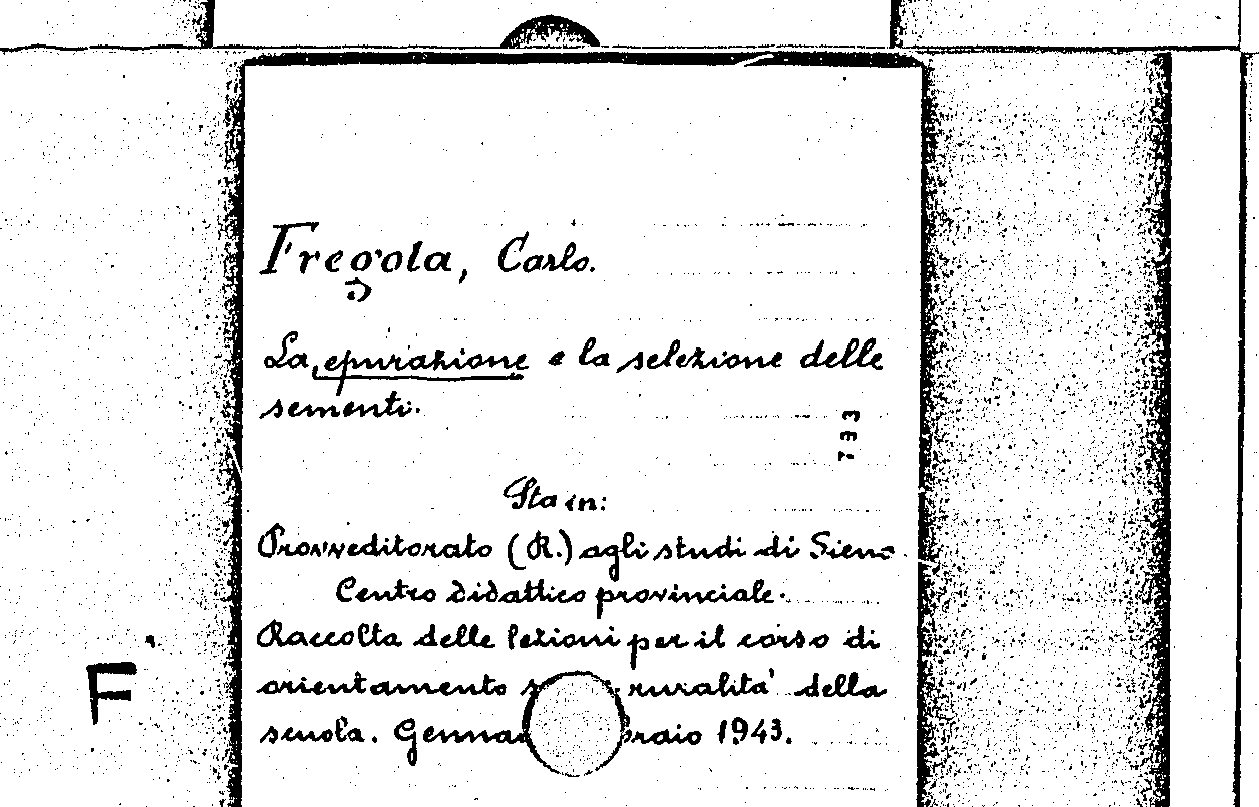 Fregola, Carlo.
La epurazione e la selezione delle
sementi.
Sta in:
Provveditorato (R.) agli studi di Siena.
Centro didattico provinciale.
Raccolta delle lezioni per il corso di
orientamento ruralità della
scuola. Gennaio 1943.
F